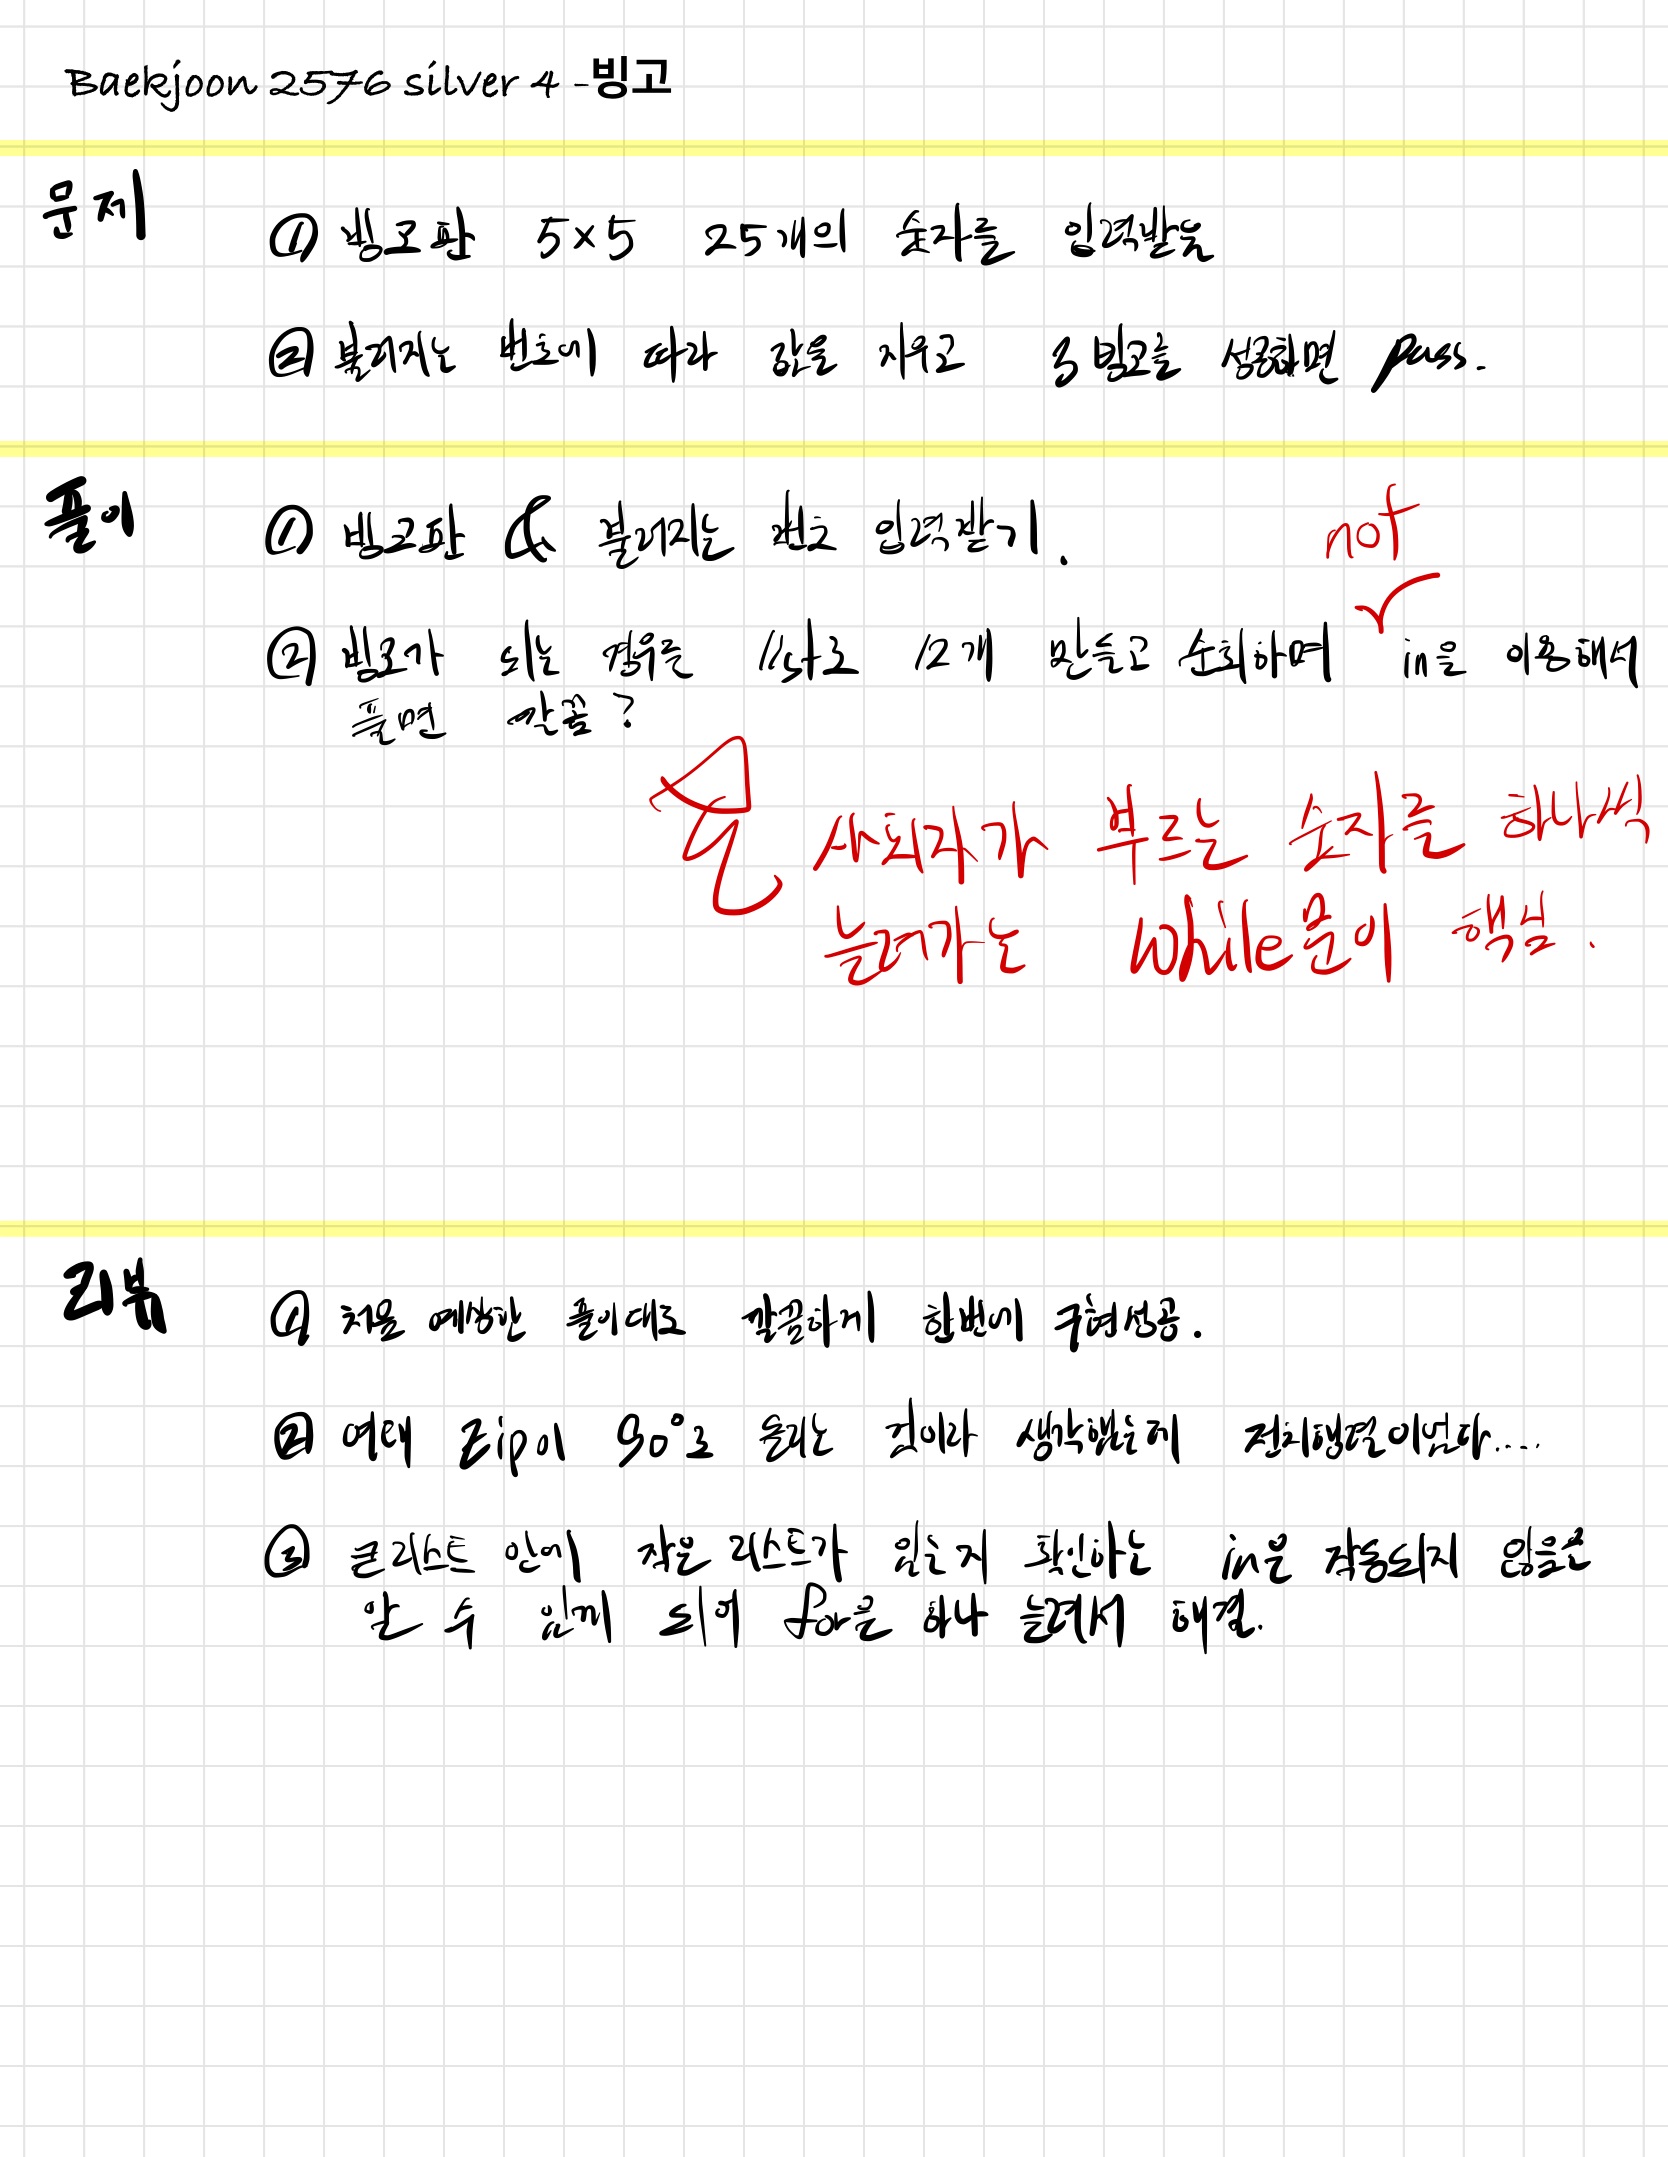 Baekjoon 2576 silver 4 - 빙고
문제
① 빙고판 5×5 25개의 숫자를 입력받음
② 불려지는 번호에 따라 값을 지우고 3빙고를 성공하면 pass.
풀이
① 빙고판 & 불려지는 번호 입력받기.
not
② 빙고가 되는 경우를 list로 12개 만들고 순회하며 ✓ in을 이용해서
풀면 깔끔?
사회자가 부르는 숫자를 하나씩
늘려가는 while문이 핵심.
리뷰
① 처음 예상한 풀이대로 깔끔하게 한번에 구현성공.
② 여태 zip이 90°로 돌리는 것이라 생각했는데 전치행렬이었다.....
③ 큰 리스트 안에 작은 리스트가 있는지 확인하는 in은 작동되지 않음을
알 수 있게 되어 for을 하나 늘려서 해결.